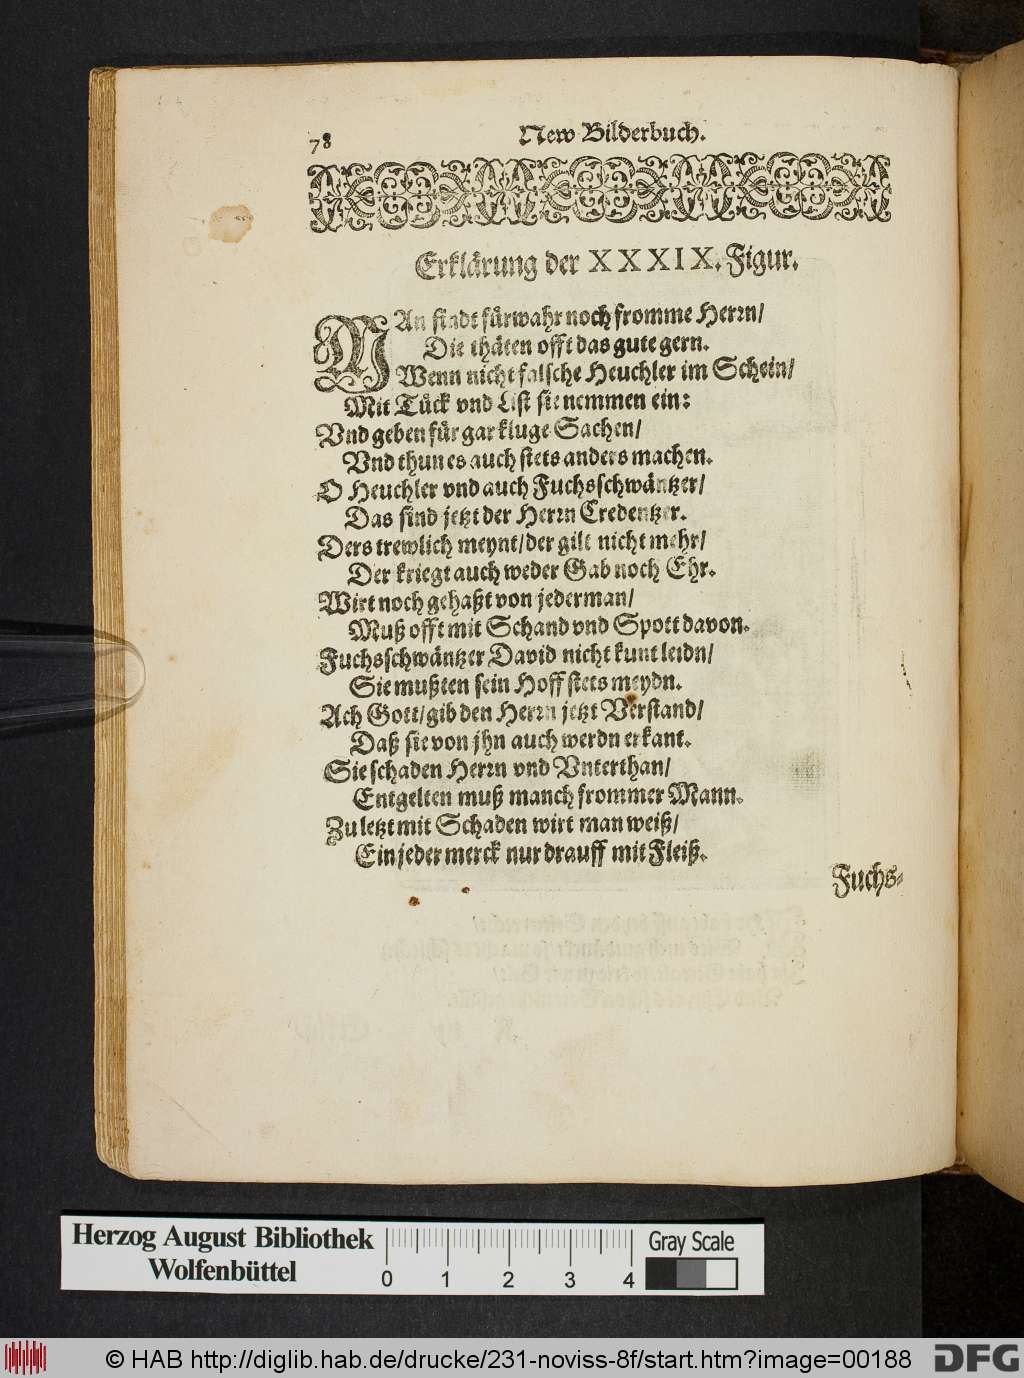 78
New Bilderbuch.
Erklärung der XXXIX. Figur.
MAn findt fürwahr noch fromme Herrn/
Die thäten offt das gute gern.
Wenn nicht falsche Heuchler im Schein/
Mit Tück vnd List sie nemmen ein:
Vnd geben für gar kluge Sachen/
Vnd thun es auch stets anders machen.
O Heuchler vnd auch Fuchsschwäntzer/
Das sind jetzt der Herrn Credentzer.
Ders trewlich meynt/ der gilt nicht mehr/
Der kriegt auch weder Gab noch Ehr.
Wirt noch gehaßt von jederman/
Muß offt mit Schand vnd Spott davon.
Fuchsschwäntzer David nicht kunt leidn/
Sie mußten sein Hoff stets meydn.
Ach Gott/ gib den Herrn jetzt Verstand/
Daß sie von jhn auch werdn erkant.
Sie schaden Herrn vnd Vnterthan/
Entgelten muß manch frommer Mann.
Zu letzt mit Schaden wirt man weiß/
Ein jeder merck nur drauff mit Fleiß.
Fuchs-
Herzog August Bibliothek
Wolfenbüttel
0 1 2 3 4
Gray Scale
© HAB http://diglib.hab.de/drucke/231-noviss-8f/start.htm?image=00188
DFG